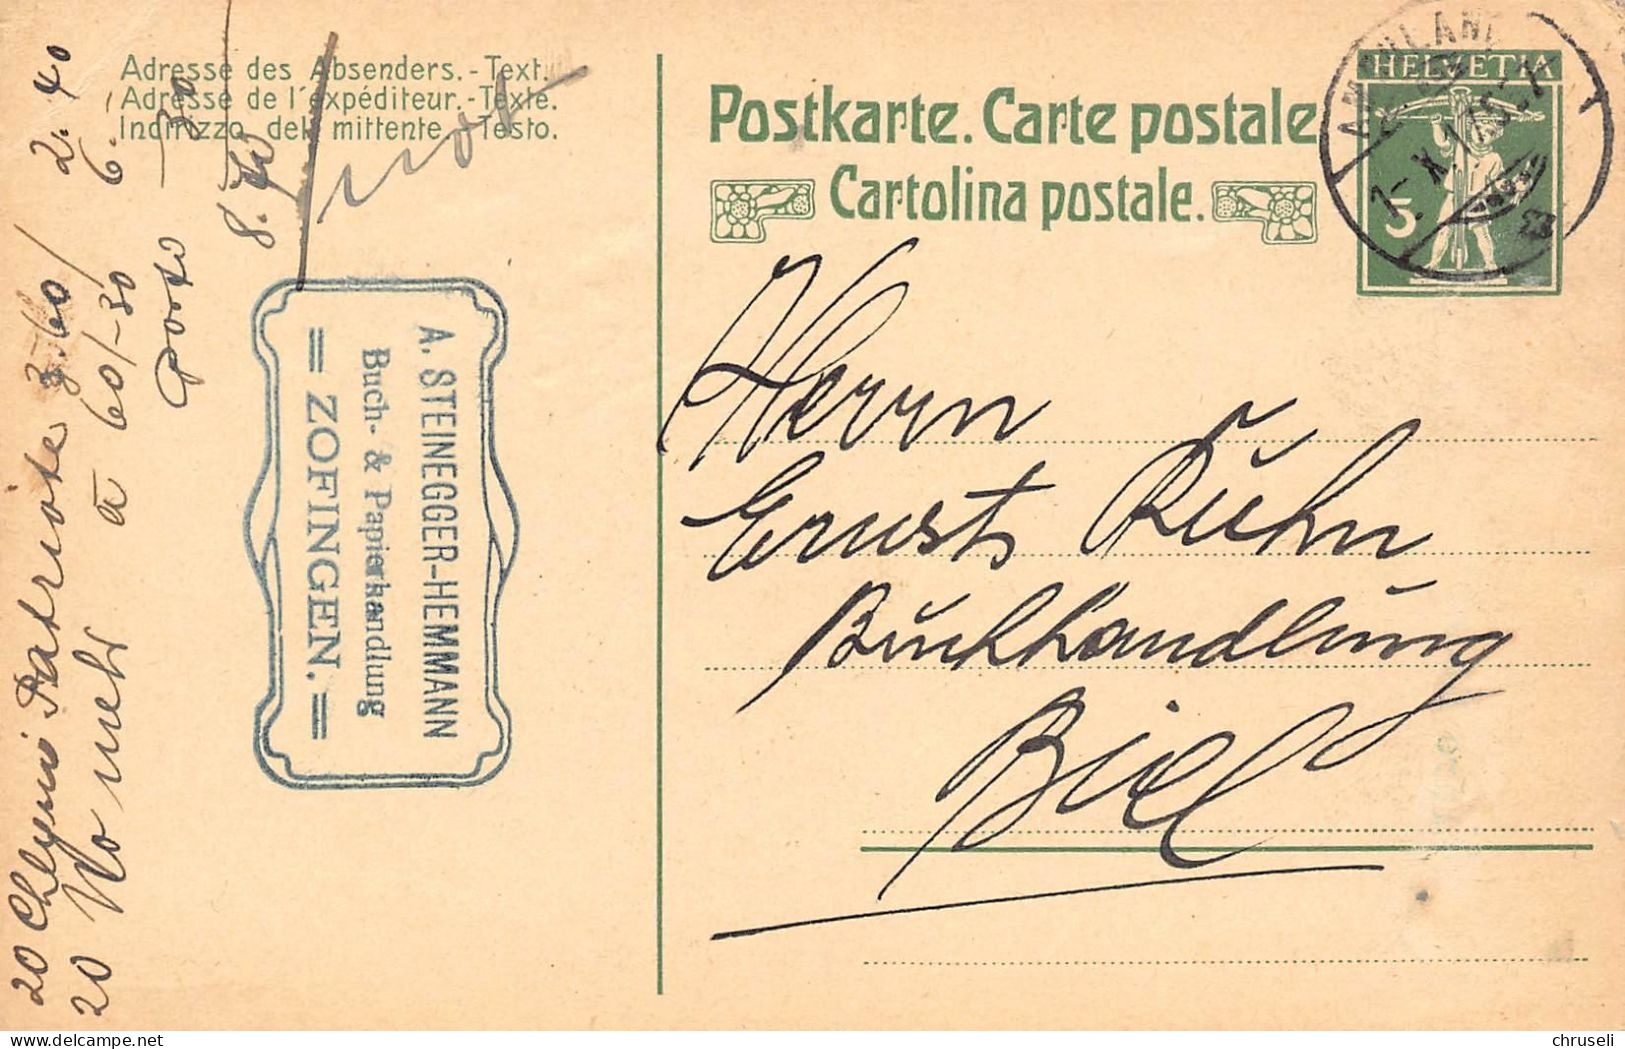 Adresse des Absenders.-Text.
Adresse de l'expéditeur.-Texte.
Indirizzo del mittente.-Testo.
Postkarte. Carte postale
Cartolina postale.
HELVETIA
5
A. STEINEGGER-HEMMANN
Buch- & Papierhandlung
= ZOFINGEN. =
Herrn
Ernst Kuhn
Buchhandlung
Biel
20 Patriote 3.60/ 2.40
20 Wo mehr a 60/-30 6.-
Porto -30
8.70
© chruseli